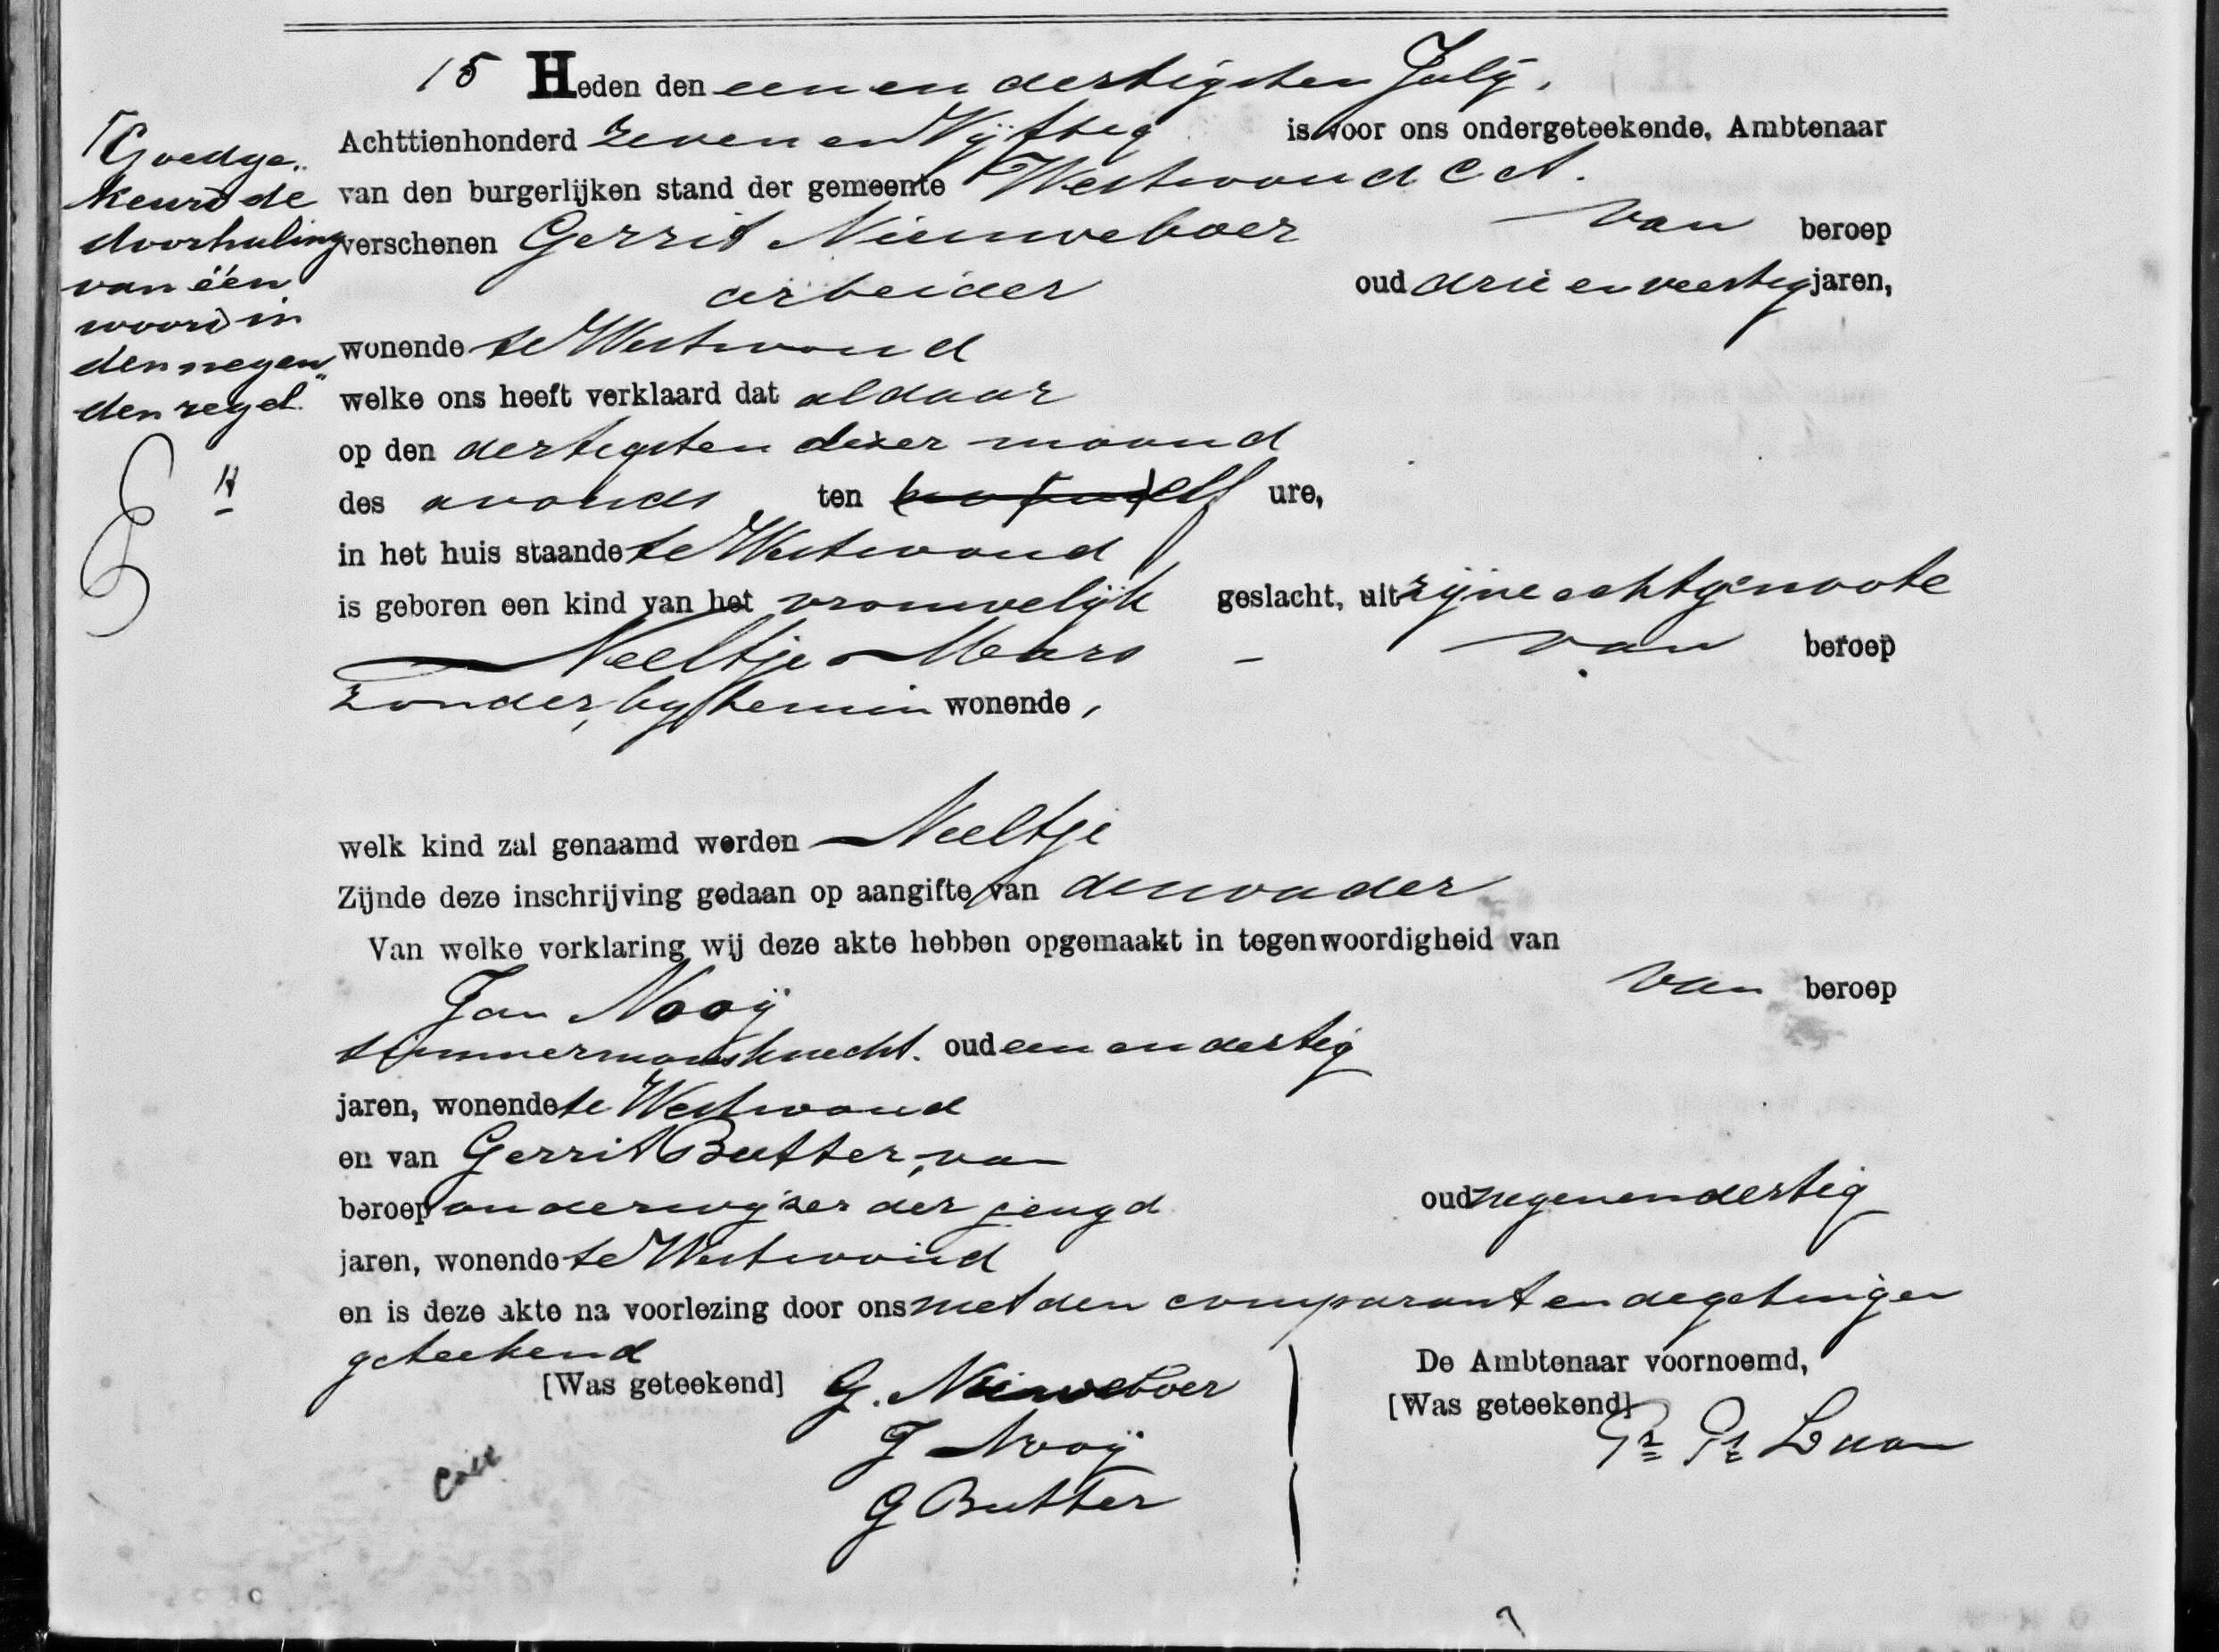 15 Heden den een en dertigsten July,
Achttienhonderd zeven en Vijftig is voor ons ondergeteekende, Ambtenaar
van den burgerlijken stand der gemeente Westwoud C A.
verschenen Gerrit Nieuweboer van beroep
arbeider oud drie en veertig jaren,
wonende te Westwoud
welke ons heeft verklaard dat aldaar
op den dertigsten dezer maand
des avonds ten elf ure,
in het huis staande te Westwoud
is geboren een kind van het vrouwelijk geslacht, uit zijne echtgenoote
Neeltje Mears - van beroep
zonder, by hem in wonende,
welk kind zal genaamd worden Neeltje
Zijnde deze inschrijving gedaan op aangifte van den vader
Van welke verklaring wij deze akte hebben opgemaakt in tegenwoordigheid van
Jan Nooÿ van beroep
timmermansknecht. oud een en dertig
jaren, wonende te Westwoud
en van Gerrit Butter, van
beroep onderwyzer der jeugd oud negenendertig
jaren, wonende te Westwoud
en is deze akte na voorlezing door ons met den comparant en de getuigen
geteekend
[Was geteekend] G. Nieuweboer
J Nooÿ
G Butter
De Ambtenaar voornoemd,
[Was geteekend]
Goedge„
keurd de
doorhaling
van één
woord in
den negen„
den regel.